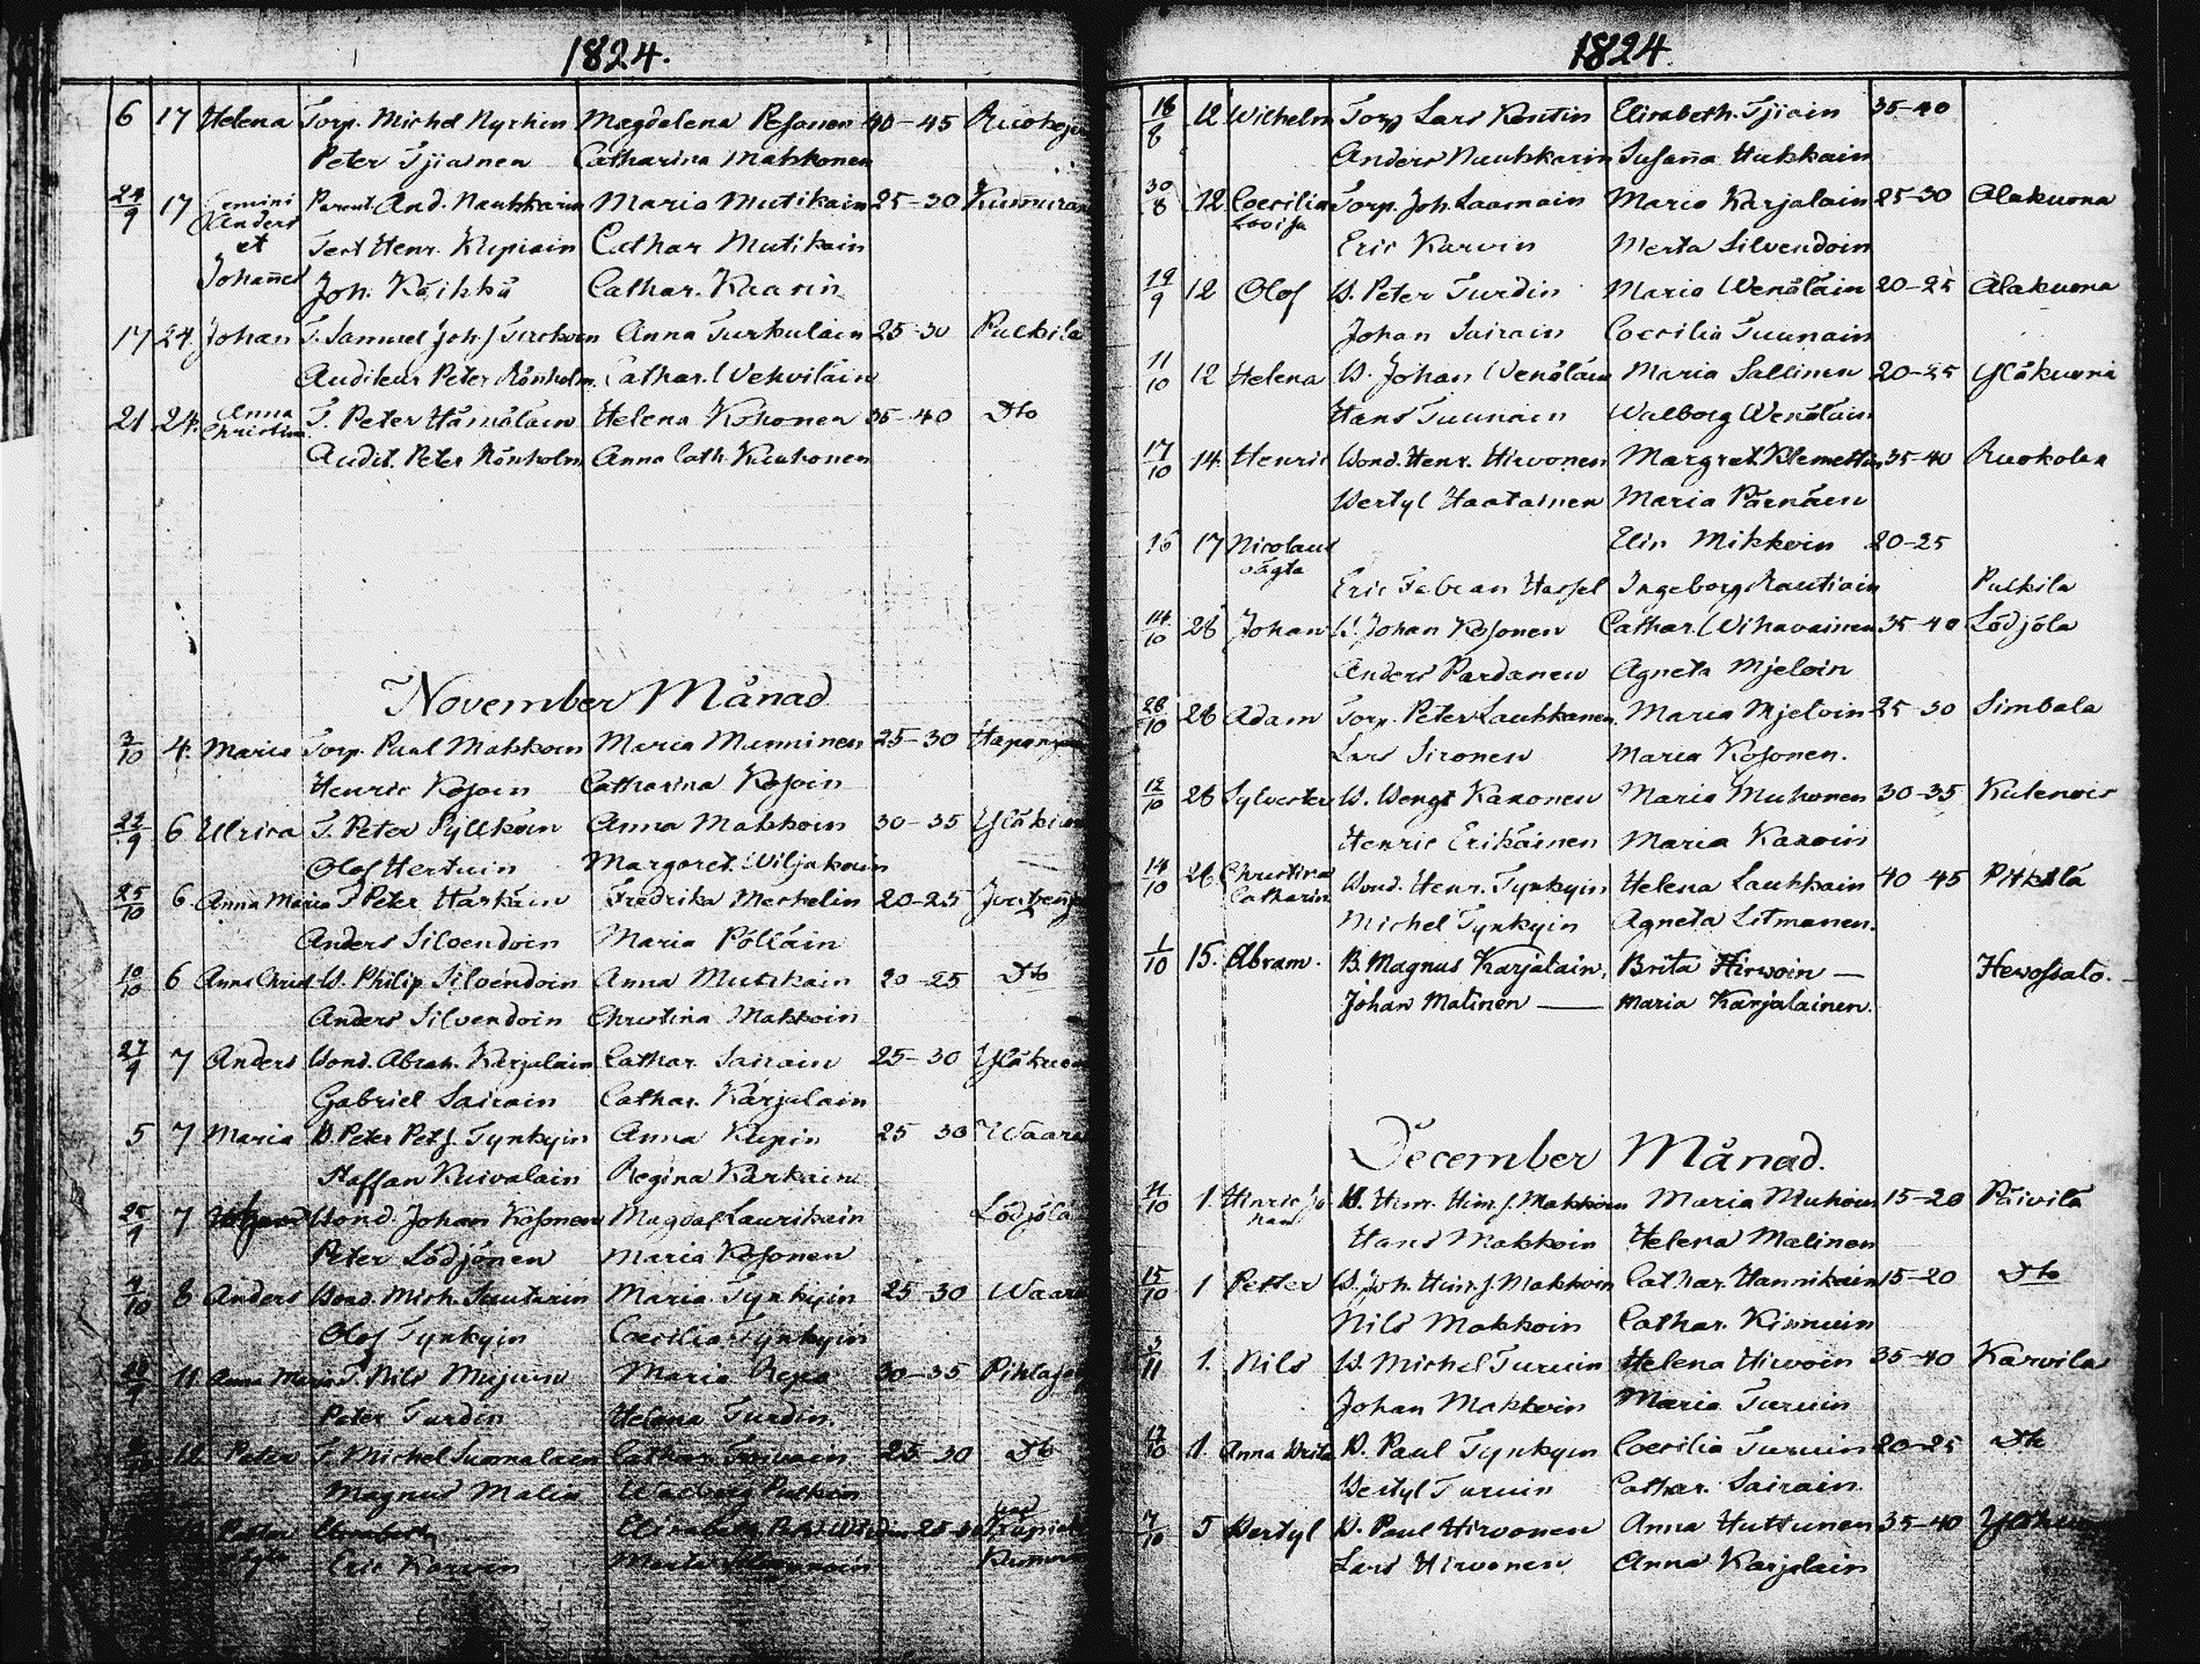 1824.
6 17 Helena Torp. Michel Nyrhin Magdalena Pesonen 40-45
Peter Tjiainen Catharina Makkonen
24/9 17 Gemini Anders et Johannes Parent. And. Naukkarin Maria Mutikain 25-30
Test Henr. Kupiain Cathar Mutikain
Joh. Käikkä Cathar. Kaarin
17 24. Johan T. Samuel Joh.s. Turckoin Anna Turkulain 25-30 Pulkila
Auditeur Peter Rönholm. Cathar. Wehviläin
21 24. Anna Christina T. Peter Hämäläin Helena Kohonen 35-40 Dto
Audit. Peter Rönholm Anna Cath. Kuukonen
November Månad
3/10 4. Maria Torp. Paul Makkoin Maria Munninen 25-30
Henric Kosoin Catharina Kosoin
22/9 6 Ulrica T. Peter Pyllköin Anna Makkoin 30-35
Olof Hertuin Margaret. Wiljakain
25/10 6 Anna Maria T Peter Härkäin Fredrika Mechelin 20-25
Anders Silvendoin Maria Pölläin
10/10 6 Anna Christ B. Philip Silvendoin Anna Mutikain 20-25 Dto
Anders Silvendoin Christina Makkoin
27/9 7 Anders Bond. Abrah. Karjalain Cathar. Sairain 25-30
Gabriel Sairain Cathar. Karjalain
5 7 Maria B. Peter Pet.s. Tynkyin Anna Kupin 25 30 Waara
Staffan Kuivalain Regina Karkain
25/9 7 Bond. Johan Kosonen Magdal Laurikain Lödjölä
Peter Lödjönen Maria Kosonen
4/10 8 Anders Bond Mich. Sautarin Maria Tynkyin 25-30 Waara
Olof Tynkyin Coecilia Tynkyin
11 Anna Maria T. Nils Mujuin Maria Repo 30-35
Peter Turdin Helena Turdin.
12 Peter T. Michel Suomalain Cathar. 25-30 Dto
Magnus Malin
Petter Elisabeth 25-30
Eric Karvin Merta
1824.
18/8 12 Wilhelm Torp Lars Kontin Elisabeth. Tjiain 35-40
Anders Naukkarin Susanna Hukkain
30/8 12 Coecilia Lovisa Torp. Joh. Laamain Maria Karjalain 25-30 Alakuona
Eric Karvin Merta Silvendoin
19/9 12 Olof B. Peter Turdin Maria Wenäläin 20-25 Alakuona
Johan Sairain Coecilia Tuunain
11/10 12 Helena B. Johan Wenäläin Maria Sallinen 20-25 Yläkuona
Hans Tuunain Walborg Wenäläin
17/10 14 Henric Bond. Henr. Hirvonen Margret. Klemettin 35-40 Ruokolax
Bertyl Haatainen Maria Pärnäen
16 17 Nicolaus oägta Elin Mikkoin 20-25
Eric Fabean Hassel Ingeborg Rautiain Pulkila
14/10 28 Johan B. Johan Kosonen Cathar. Wihavainen 35-40 Lödjölä
Anders Pardanen Agneta Mjeloin
28/10 28 Adam Torp. Peter Laukkanen. Maria Mjeloin 25-30 Simbala
Lars Sironen Maria Kosonen.
12/10 28 Sylvester B. Bengt Kaxonen Maria Muhonen 30-35
Henric Erikäinen Maria Kaxoin
14/10 28 Christina Catharin Bond. Henr. Tynkyin Helena Laukkain 40-45 Pitkälä
Michel Tynkyin Agneta Litmanen.
1/10 15. Abram. B. Magnus Karjalain, Brita Hirwoin — Hevossalo.
Johan Malinen — Maria Karjalainen.
December Månad.
11/10 1. Hinric Johan B. Hinr. Hinr.s. Makkoin Maria Muhoin 15-20 Päivilä
Hans Makkoin Helena Malinen
15/10 1 Petter B. Joh. Hinr.s. Makkoin Cathar. Hannikain 15-20 Dto
Nils Makkoin Cathar. Kinnuin
3/11 1. Nils B. Michel Turuin Helena Hirvoin 35-40 Karvila
Johan Makkoin Maria Turuin
12/10 1. Anna Brita B. Paul Tynkyin Coecilia Turuin 20-25 Dto
Bertyl Turuin Cathar. Sairain.
7/10 5 Bertyl B. Paul Hirvonen Anna Huttunen 35-40
Lars Hirvonen Anna Karjalain